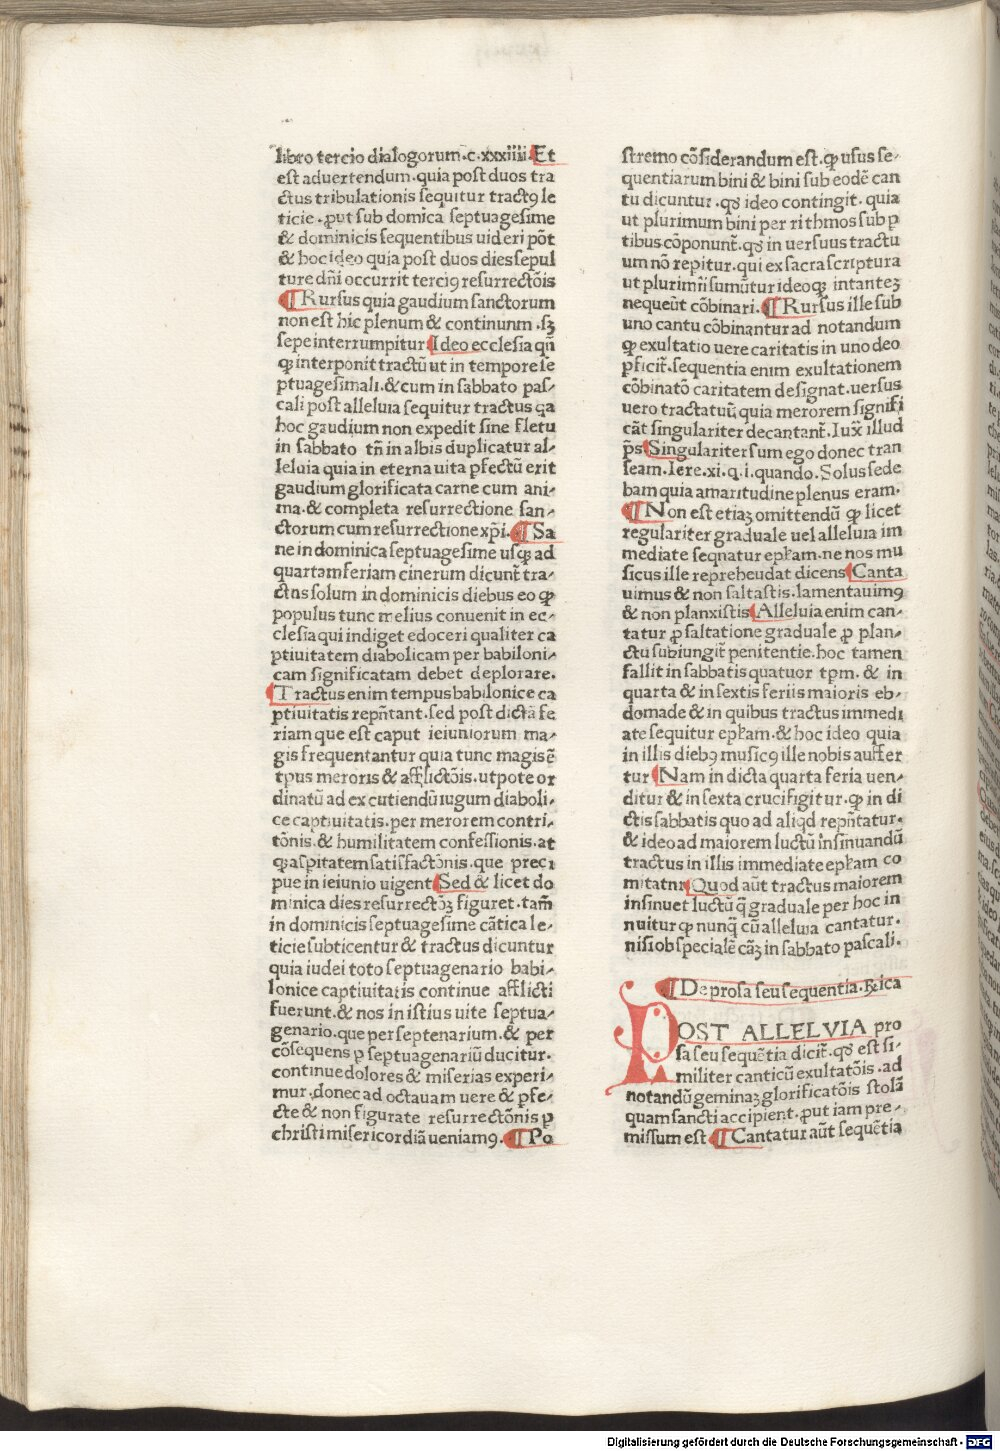 libro tercio dialogorum.c.xxxiiii. Et
est aduertendum.quia post duos tra
ctus tribulationis sequitur tractꝯ le
ticie.ꝓut sub domĩca septuagesime
& dominicis sequentibus uideri põt
& hoc ideo quia post duos dies sepul
ture dñi occurrit terciꝯ resurrectõis
¶ Rursus quia gaudium sanctorum
non est hic plenum & continunm .sꝫ
sepe interrumpitur Ideo ecclesia qñ
qꝫ interponit tractũ ut in tempore se
ptuagesimali.& cum in sabbato pas⸗
cali post alleluia sequitur tractus qa
hoc gaudium non expedit sine fletu
in sabbato tñ in albis duplicatur al⸗
leluia quia in eterna uita ꝑfectũ erit
gaudium glorificata carne cum ani⸗
ma.& completa resurrectione san⸗
ctorum cum resurrectione xp̃i. ¶ Sa
ne in dominica septuagesime usqꝫ ad
quartam feriam cinerum dicunt̃ tra⸗
ctns solum in dominicis diebus eo ꝙ
populus tunc melius conuenit in ec⸗
clesia qui indiget edoceri qualiter ca
ptiuitatem diabolicam per babiloni⸗
cam significatam debet deplorare.
Tractus enim tempus babilonice ca
ptiuitatis repñtant.sed post dictã fe
riam que est caput ieiuniorum ma⸗
gis frequentantur quia tunc magis ẽ
tp̃us meroris & afflictõis.utpote or
dinatũ ad excutiendũ iugum diaboli⸗
ce captiuitatis.per merorem contri⸗
tõnis.& humilitatem confessionis.at
qꝫ aspitatem satisfactõnis.que preci
pue in ieiunio uigent Sed & licet do
minica dies resurrectõꝫ figuret.tam̃
in dominicis septuagesime cãtica le⸗
ticie subticentur & tractus dicuntur
quia iudei toto septuagenario babi⸗
lonice captiuitatis continue afflicti
fuerunt.& nos in istius uite septua⸗
genario.que per septenarium.& per
cõsequens ꝑ septuagenariũ ducitur.
continue dolores & miserias experi⸗
mur.donec ad octauam uere & ꝑfe⸗
cte & non figurate resurrectõnis ꝑ
christi misericordiã ueniamꝯ. ¶ Po
stremo cõsiderandum est.ꝙ usus se⸗
quentiarum bini & bini sub eodẽ can
tu dicuntur.qď ideo contingit.quia
ut plurimum bini per rithmos sub ꝑ
tibus cõponunt̃.qď in uersuus tractu
um nõ repitur.qui ex sacra scriptura
ut plurimũ sumũtur ideoqꝫ intanteꝫ
nequeũt cõbinari. ¶ Rursus ille sub
uno cantu cõbinantur ad notandum
ꝙ exultatio uere caritatis in uno deo
ꝑficit̃.sequentia enim exultationem
cõbinatõ caritatem designat.uersus
uero tractatuũ quia merorem signifi
cãt singulariter decantant̃.Iux̃ illud
p̃s Singulariter sum ego donec tran
seam.Iere.xi.q.i.quando.Solus sede
bam quia amaritudine plenus eram.
¶ Non est etiaꝫ omittendũ ꝙ licet
regulariter graduale uel alleluia im
mediate seqnatur ep̃lam.ne nos mu
sicus ille reprehendat dicens Canta
uimus & non saltastis.lamentauimꝯ
& non planxistis Alleluia enim can⸗
tatur ꝓ saltatione graduale ꝓ plan⸗
ctu subiungit̃ penitentie.hoc tamen
fallit in sabbatis quatuor tp̃m.& in
quarta & in sextis feriis maioris eb⸗
domade & in quibus tractus immedi
ate sequitur ep̃lam.& hoc ideo quia
in illis diebꝯ musicꝯ ille nobis auffer
tur Nam in dicta quarta feria uen⸗
ditur & in sexta crucifigitur.ꝙ in di
ctis sabbatis quo ad aliqd repñtatur.
& ideo ad maiorem luctũ insinuandũ
tractus in illis immediate ep̃lam co
mitatnr Quod aũt tractus maiorem
insinuet luctũ q̃ graduale per hoc in
nuitur ꝙ nunq̃ cũ alleluia cantatur.
nisi ob specialẽ cãꝫ in sabbato pascali.
¶ De prosa seu sequentia.R̃ica
POST ALLELVIA pro
sa seu sequẽtia dicit̃.qď est si⸗
militer canticũ exultatõis.ad
notandũ geminaꝫ glorificatõis stolã
quam sancti accipient.ꝓut iam pre⸗
missum est ¶ Cantatur aũt sequẽtia
Digitalisierung gefördert durch die Deutsche Forschungsgemeinschaft - DFG